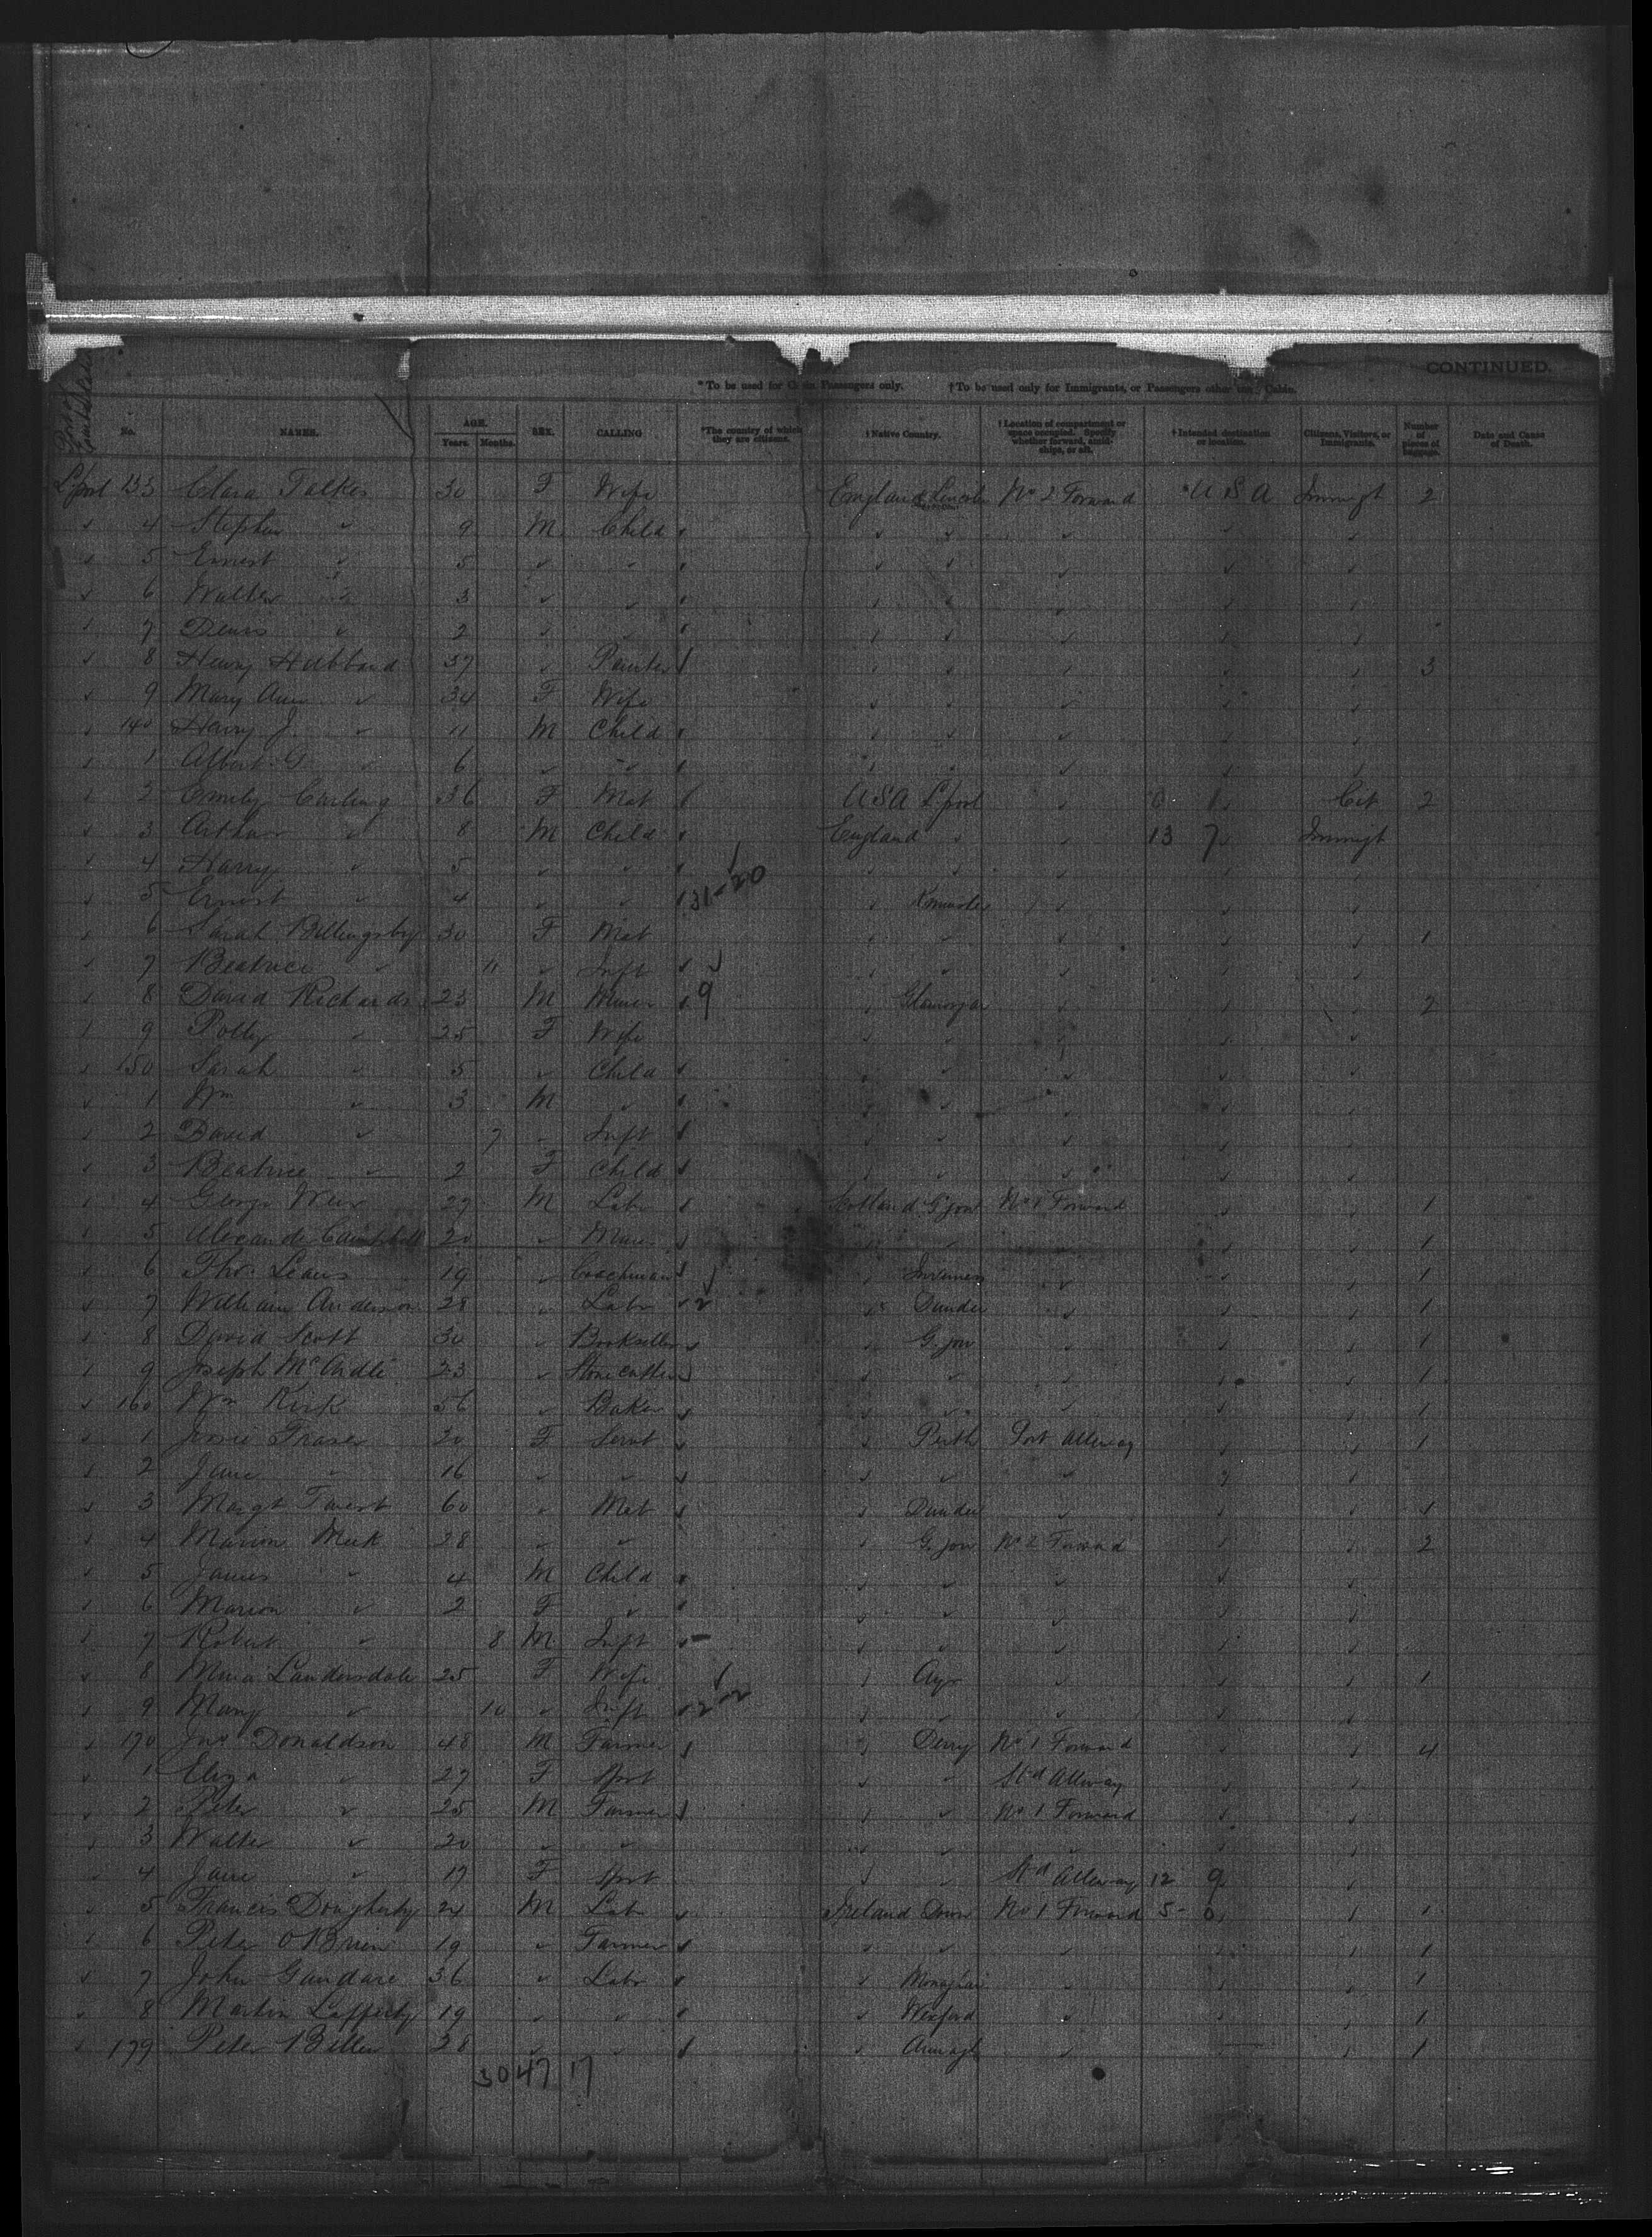 CONTINUED.
*To be used for Cabin Passengers only. †To be used only for Immigrants, or Passengers other than Cabin.
Port of Embarkation No. NAMES. AGE. Years. Months. SEX. CALLING *The country of which they are citizens. †Native Country. †Location of compartment or space occupied. Specify whether forward, amidships, or aft. †Intended destination or location. Citizens, Visitors, or Immigrants. Number of pieces of luggage. Date and Cause of Death.
L'pool 133 Clara 30 F Wife England Lincoln No 2 Forward USA Immigt 2
4 Stephen " 9 M Child
5 Ernest " 5 " "
6 Walter " 3 " "
7 " 2 " "
8 Henry Hubbard 37 " Painter 3
9 Mary Ann " 34 F Wife
140 Harry J. " 11 M Child
1 Albert G " 6 " "
2 Emily Carling 36 F Mat USA L'pool Cit 2
3 Arthur " 8 M Child England " 13 7 Immigt
4 Harry " 5 " "
5 Ernest " 4 " " 31-20
6 Sarah Billingsby 30 F Mat 1
7 Beatrice " 11 " Inft
8 David Richards 23 M Miner 9 Glamorgan 2
9 Polly " 25 F Wife
150 Sarah " 5 " Child
1 Wm " 3 M "
2 David " 7 " Inft
3 Beatrice " 2 F Child
4 George Weir 27 M Labr Scotland G'gow No 1 Forward 1
5 Alexander Campbell 20 " 1
6 Thos 19 " Coachman Inverness 1
7 William Anderson 28 " Labr 2 Dundee 1
8 David Scott 30 " Bookseller G.gow 1
9 Joseph McArdle 23 " Stonecutter 1
160 Wm Kirk 56 " Baker 1
1 Jessie Fraser 20 F Servt Perth Port Alleway 1
2 Jane " 16 " "
3 Margt 60 " Mat Dundee 1
4 Marion Meek 28 " " G.gow No 2 Forward 2
5 James " 4 M Child
6 Marion " 2 F "
7 Robert " 8 M Inft
8 Landersdale 25 F Wife Ayr 1
9 Mary " 10 " Inft
170 Jno Donaldson 48 M Farmer Derry No 1 Forward 4
1 Eliza " 27 F Spst " Stbd Alleway
2 Peter " 25 M Farmer " No 1 Forward
3 Walter " 20 " "
4 Jane " 17 F Spst Stbd Alleway 12 9
5 Francis Dougherty 24 M Labr Ireland Down No 1 Forward 5- 0 1
6 Peter O'Brien 19 " Farmer 1
7 John 36 " Labr Monaghan 1
8 Martin Lafferty 19 " " Wexford 1
179 Peter 28 " " Armagh 1
30 47 17